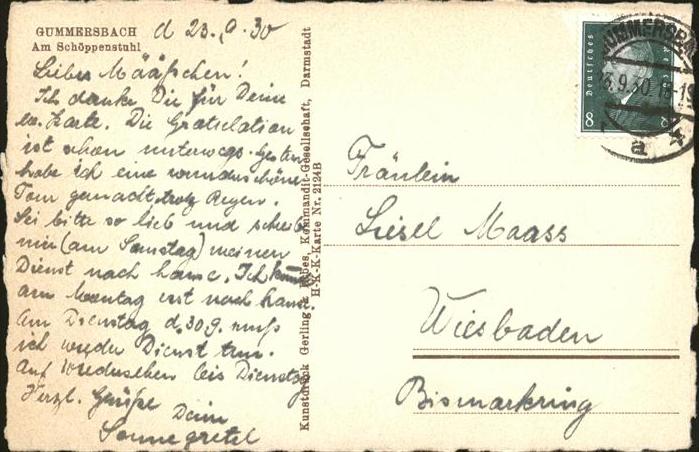 GUMMERSBACH
Am Schöppenstuhl
d 23.9.30
Liebes Määßchen!
Ich danke Dir für Deine
Karte. Die Gratulation
ist schon unterwegs. Gestern
habe ich eine wunderschöne
Tour gemacht, trotz Regen.
Sei bitte so lieb und schreib
mir (am Samstag) meinen
Dienst nach hause. Ich
am Montag erst nach haus.
Am Dienstag d. 30.9. muß
ich wieder Dienst tun.
Auf Wiedersehen bis Dienstag
Herzl. Grüße Deine
Sonnegretel
Kunstdruck Gerling & Kommandit-Gesellschaft, Darmstadt
H-K-K-Karte Nr. 2124B
GUMMERSBACH
23.9.30
a
Deutsches Reich
8 8
Fräulein
Liesel Maass
Wiesbaden
Bismarkring